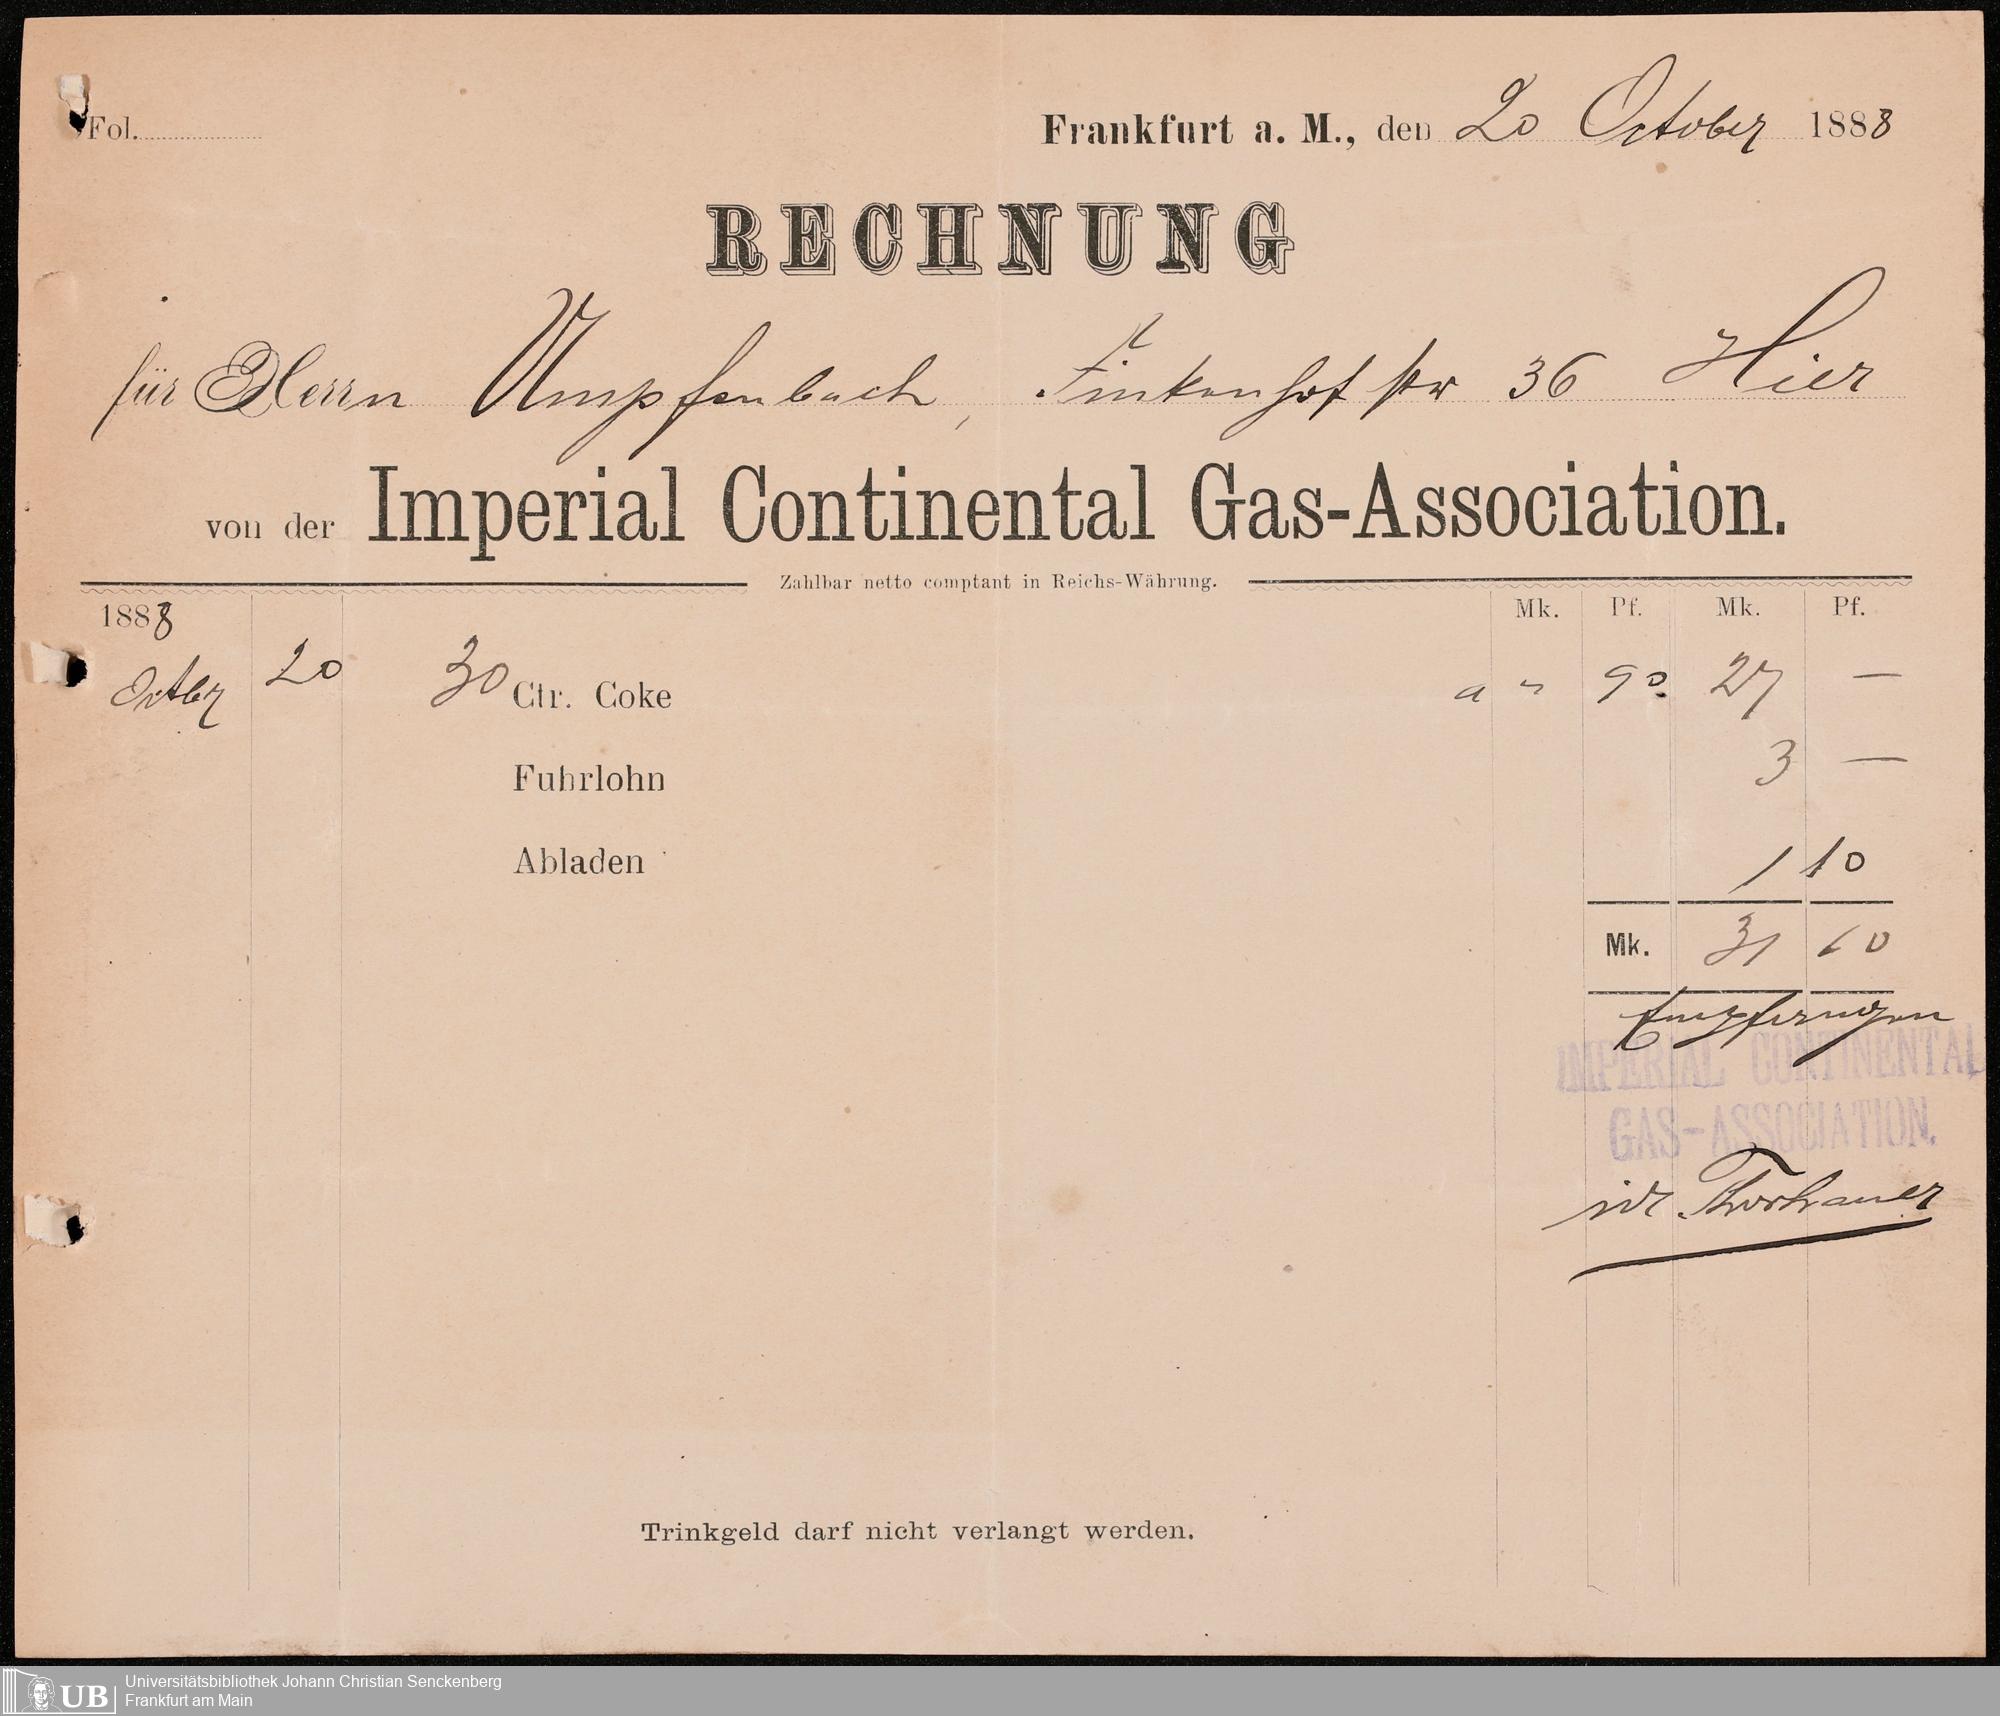 Fol. Frankfurt a. M., den 20 October 1888
RECHNUNG
für Herrn Umpfenbach, Finkenhofstr 36 Hier
von der Imperial Continental Gas-Association.
Zahlbar netto comptant in Reichs-Währung.
1888 Mk. Pf. Mk. Pf.
Octbr 20 30 Ctr. Coke a " 90. 27 —
Fuhrlohn 3 —
Abladen 1 10
Mk. 31 10
Empfangen
IMPERIAL CONTINENTAL
GAS-ASSOCIATION.
Trinkgeld darf nicht verlangt werden.
UB Universitätsbibliothek Johann Christian Senckenberg
Frankfurt am Main